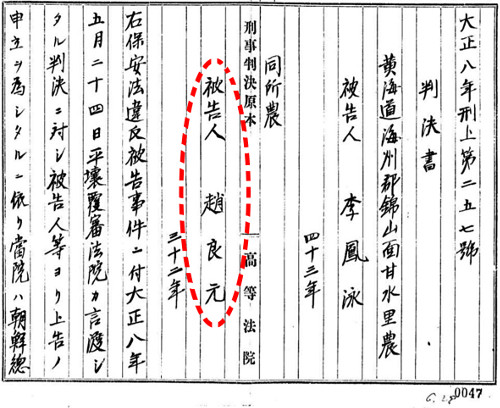 大正八年刑上第二五七號
判決書
黄海道海州郡錦山面甘水里農
被告人 李鳳泳
四十三年
刑事判決原本
高等法院
同所農
被告人 趙良元
三十二年
右保安法違反被告事件ニ付大正八年
五月二十四日平壤覆審法院カ言渡シ
タル判決ニ対シ被告人等ヨリ上告ノ
申立ヲ為シタルニ依リ當院ハ朝鮮總
0047